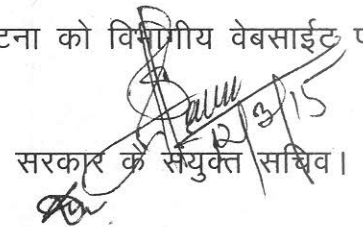 टना को विभागीय वेबसाईट प
12/3/15
सरकार के संयुक्त सचिव।